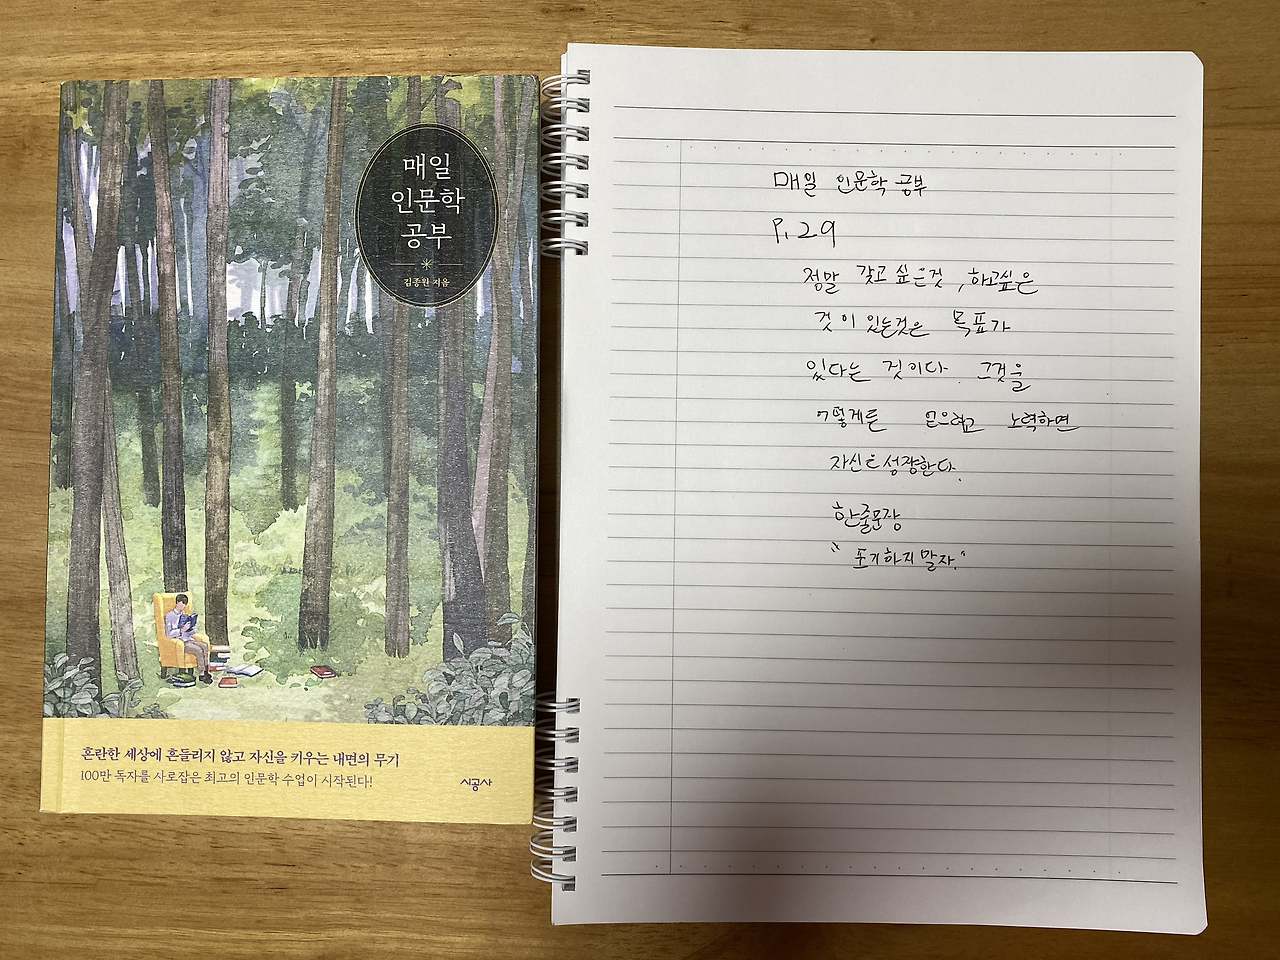 매일
인문학
공부
김종원 지음
혼란한 세상에 흔들리지 않고 자신을 키우는 내면의 무기
100만 독자를 사로잡은 최고의 인문학 수업이 시작된다!
시공사
매일 인문학 공부
P. 29
정말 갖고 싶은것, 하고싶은
것이 있는것은 목표가
있다는 것이다. 그것을
어떻게든 얻으려고 노력하면
자신은 성장한다.
한줄문장
"포기하지말자."